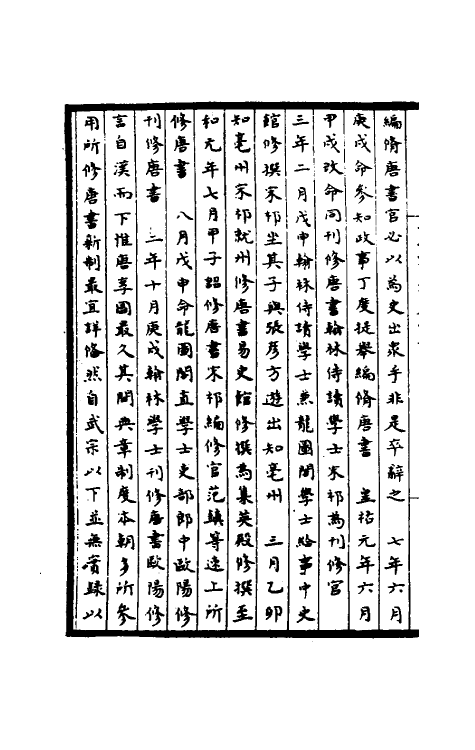 編脩唐書官必以為史出衆手非是卒辭之　七年六月
庚戌命參知政事丁度提舉編脩唐書　皇祐元年六月
甲戌改命同刊修唐書翰林侍讀學士宋祁為刊修官
三年二月戊申翰林侍讀學士兼龍圖閣學士給事中史
館修撰宋祁坐其子與張彥方遊出知亳州　三月乙卯
知亳州宋祁就州修唐書易史館修撰為集英殿修撰至
和元年七月甲子詔修唐書宋祁編修官范鎮等速上所
修唐書　八月戊申命龍圖閣直學士吏部郎中歐陽修
刊修唐書　三年十月庚戌翰林學士刊修唐書歐陽修
言自漢而下惟唐享國最久其間典章制度本朝多所參
用所修唐書新制最宜詳悉然自武宗以下並無實錄以